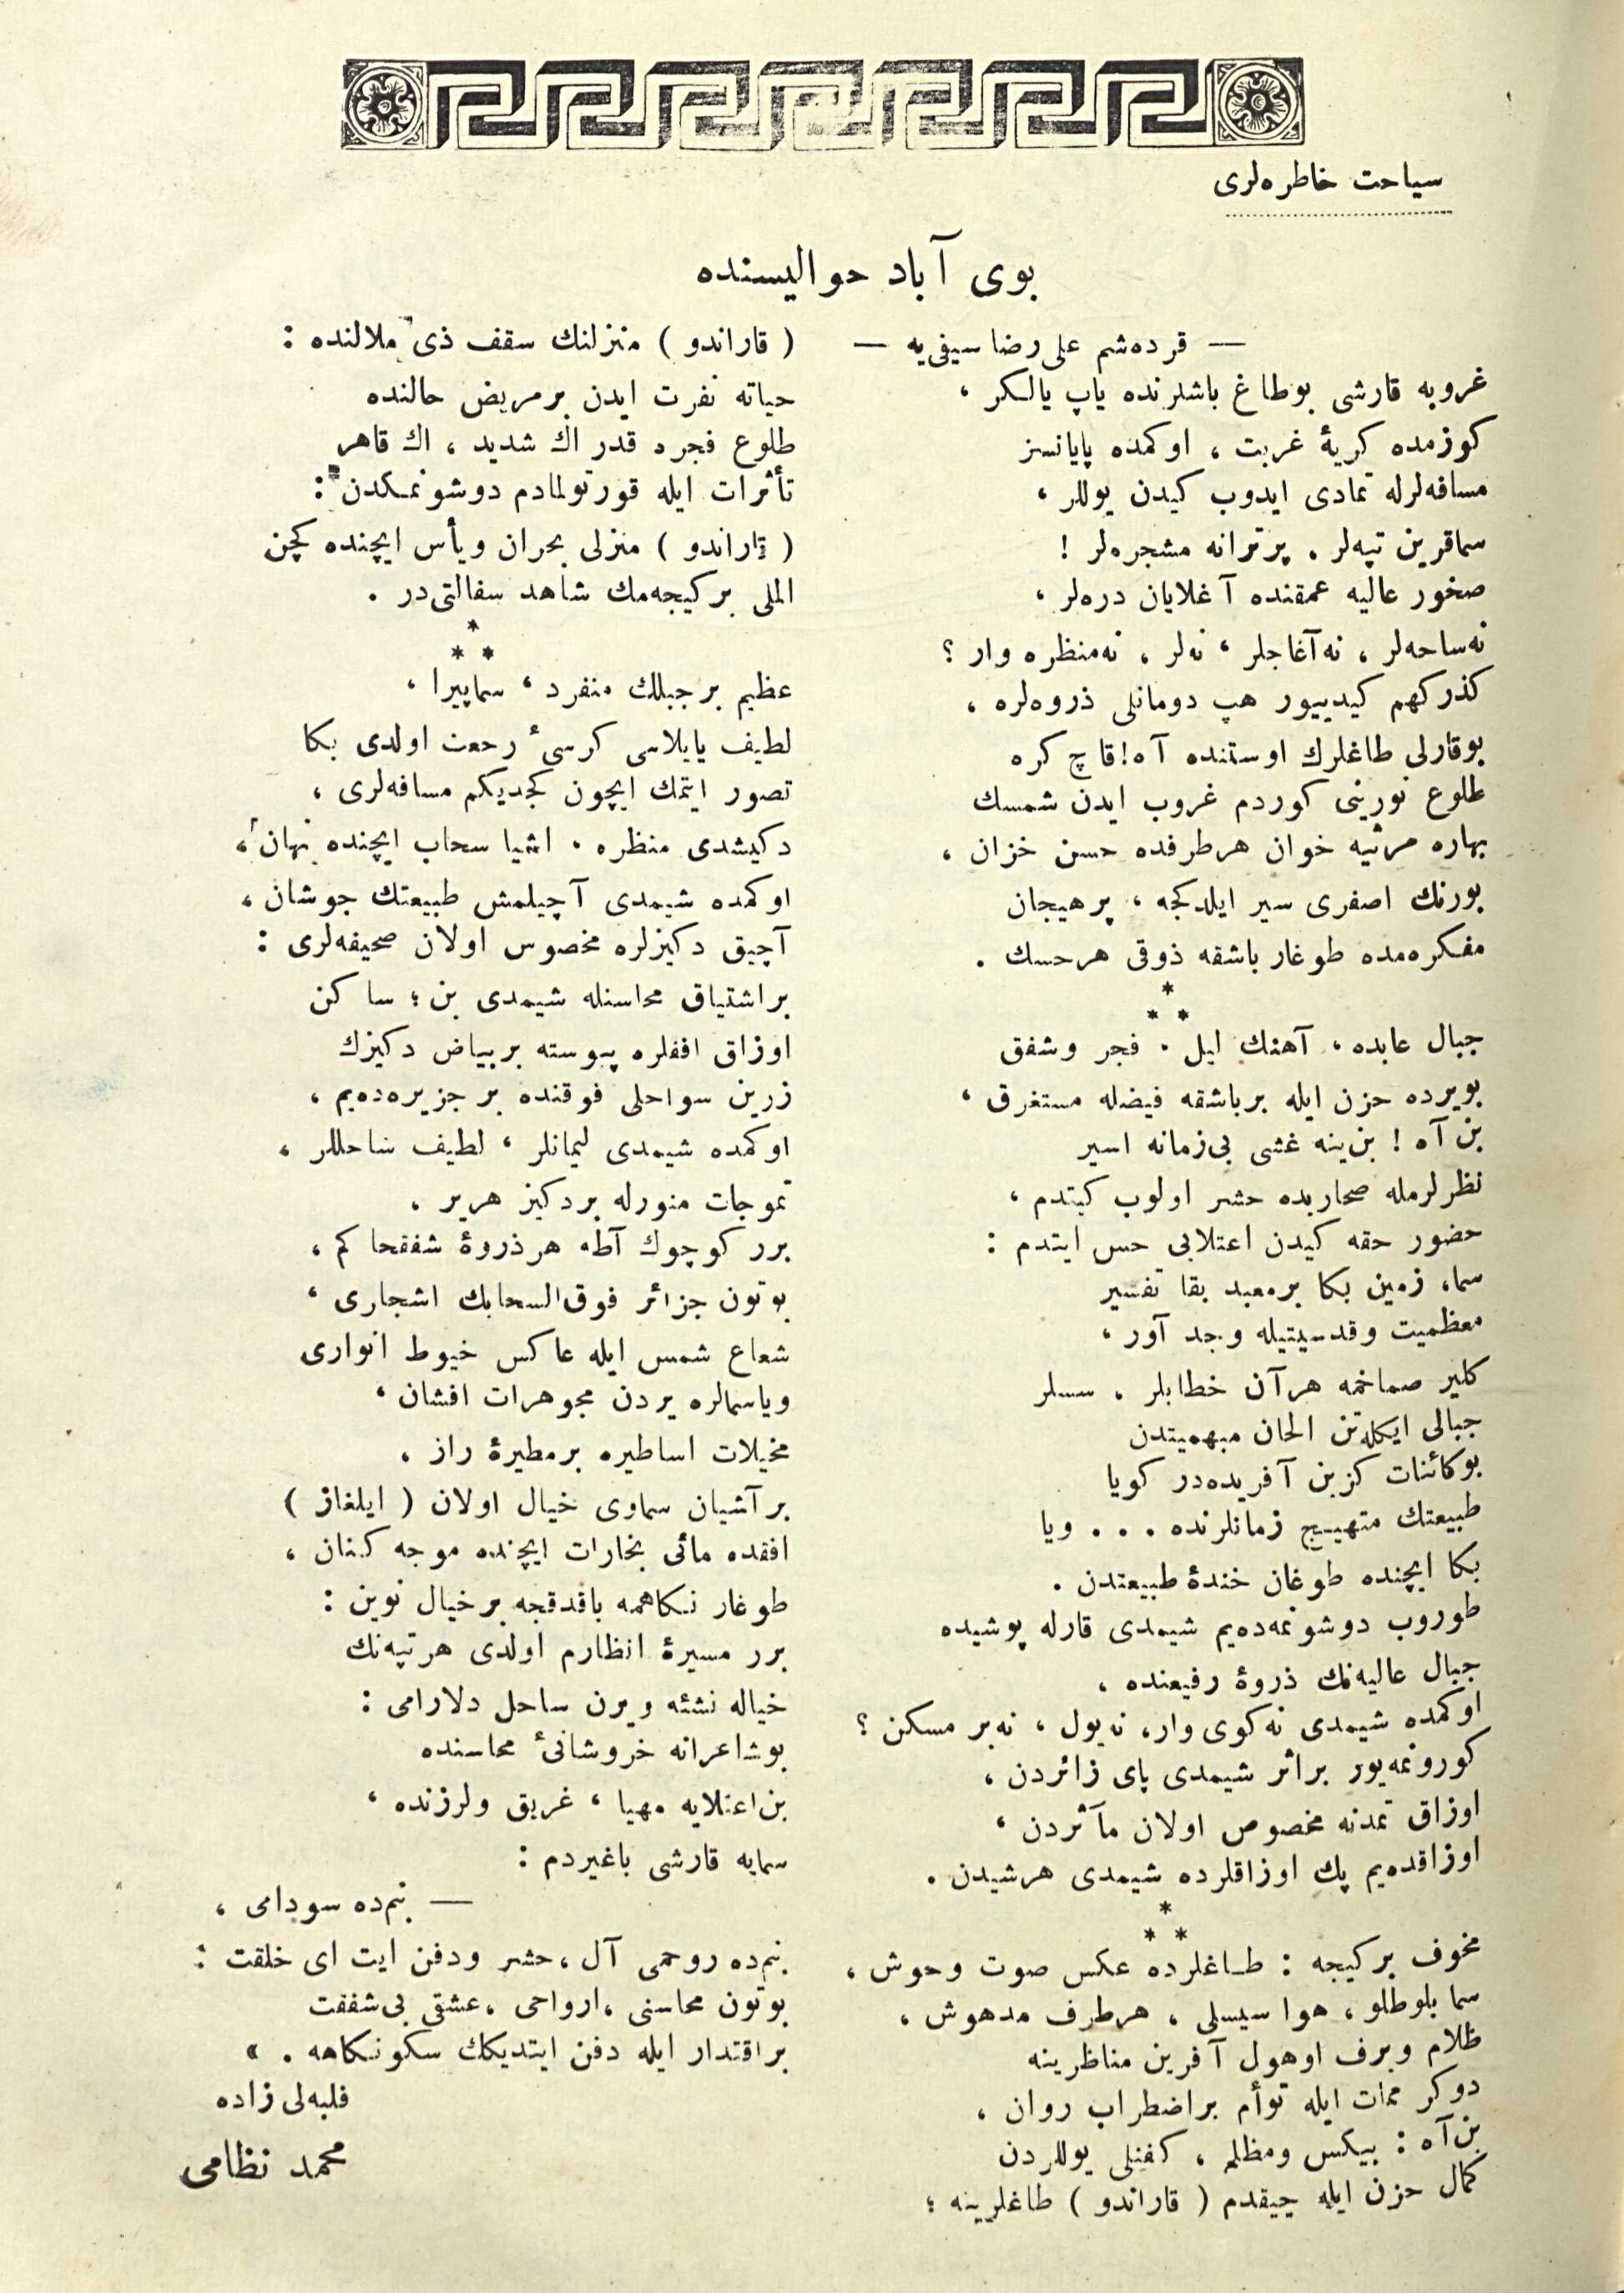 سیاحت خاطره‌لری
بوی آباد حوالیسنده
— قرده‌شم علی رضا سیفی‌یه —
غروبه قارشی بوطاغ باشلرنده یاپ یالکز ،
کوزمده کریۀ غربت ، اوکمده پایانسز
مسافه‌لرله تمادی ایدوب کیدن یوللر ،
سماقرین تپه‌لر . پرترانه مشجره‌لر !
صخور عالیه عمقنده آغلایان دره‌لر ،
نه‌ساحه‌لر ، نه‌آغاجلر ، نه‌لر ، نه‌منظره وار ؟
کذرکهم کیدییور هپ دومانلی ذروه‌لره ،
بوقارلی طاغلرك اوستنده آه! قاچ کره
طلوع نورینی کوردم غروب ایدن شمسك
بهاره مرثیه خوان هرطرفده حسن خزان ،
بورنك اصفری سیر ایلدکجه ، پرهیجان
مفکره‌مده طوغار باشقه ذوقی هرحسك .
*
* *
جبال عابده ، آهنك لیل . فجر وشفق
بویرده حزن ایله برباشقه فیضله مستغرق ،
بن آه ! بن‌ینه غشی بی‌زمانه اسیر
نظرلرمله صحاریده حشر اولوب کیتدم ،
حضور حقه کیدن اعتلایی حس ایتدم :
سما، زمین بکا برمعبد بقا تفسیر
معظمیت وقدسیتیله وجد آور ،
کلیر صماخمه هرآن خطابلر . سسلر
جبالی ایکله‌تن الحان مبهمیتدن
بوکائنات کزین آفریده‌در کویا
طبیعتك متهیـج زمانلرنده . . . ویا
بکا ایچنده طوغان خندۀ طبیعتدن .
طوروب دوشونمه‌ده‌یم شیمدی قارله پوشیده
جبال عالیه‌نك ذروۀ رفیعنده ،
اوکمده شیمدی نه‌کوی وار، نه‌یول ، نه‌بر مسکن ؟
کورونمه‌یور براثر شیمدی پای زائردن ،
اوزاق تمدنه مخصوص اولان مآثردن ،
اوزاقده‌یم پك اوزاقلرده شیمدی هرشیدن .
*
* *
مخوف برکیجه : طـاغلرده عکس صوت وحوش ،
سما بلوطلو ، هوا سیسلی ، هرطرف مدهوش ،
ظلام وبرف اوهول آفرین مناظرینه
دوکر ممات ایله توأم براضطراب روان ،
بن‌آه : بیکس ومظلم ، کفنلی یوللردن
کمال حزن ایله چیقدم ( قاراندو ) طاغلرینه ؛
( قاراندو ) منزلنك سقف ذی ملالنده :
حیاته نفرت ایدن برمریض حالنده
طلوع فجره قدر اك شدید ، اك قاهر
تأثرات ایله قورتولمادم دوشونمـکدن :
( قاراندو ) منزلی بحران ویأس ایچنده کچن
الملی برکیجه‌مك شاهد سفالتی‌در .
*
* *
عظیم برجبلك منفرد ، سماپیرا ،
لطیف یایلاسی کرسیٔ رجعت اولدی بکا
تصور ایتمك ایچون کچدیکم مسافه‌لری ،
دکیشدی منظره . اشیا سحاب ایچنده نهان ،
اوکمده شیمدی آچیلمش طبیعتك جوشان ،
آچیق دکیزلره مخصوص اولان صحیفه‌لری :
براشتیاق محاسنله شیمدی بن ؛ ساکن
اوزاق افقلره پیوسته بربیاض دکیزك
زرین سواحلی فوقنده بر جزیره‌ده‌یم ،
اوکمده شیمدی لیمانلر ، لطیف ساحللر ،
تموجات منورله بردکیز هریر .
برر کوچوك آطه هرذروۀ شفقحاکم ،
بوتون جزائر فوق‌السحابك اشجاری ،
شعاع شمس ایله عاکس خیوط انواری
ویاسمالره یردن مجوهرات افشان ،
مخیلات اساطیره برمطیرۀ راز .
برآشیان سماوی خیال اولان ( ایلغاز )
افقده مائی بخارات ایچنده موجه کنان ،
طوغار نـکاهمه باقدقجه برخیال نوین :
برر مسیرۀ انظارم اولدی هرتپه‌نك
خیاله نشئه ویرن ساحل دلارامی :
بوشاعرانه خروشانیٔ محاسنده
بن‌اعتلایه مهیا ، غریق ولرزنده ،
سمایه قارشی باغیردم :
— بنم‌ده سودامی ،
بنم‌ده روحمی آل ، حشر ودفن ایت ای خلقت :
بوتون محاسنی ، ارواحی ، عشقی بی‌شفقت
براقتدار ایله دفن ایتدیکك سکونـکاهه . »
فلبه‌لی زاده
محمد نظامی